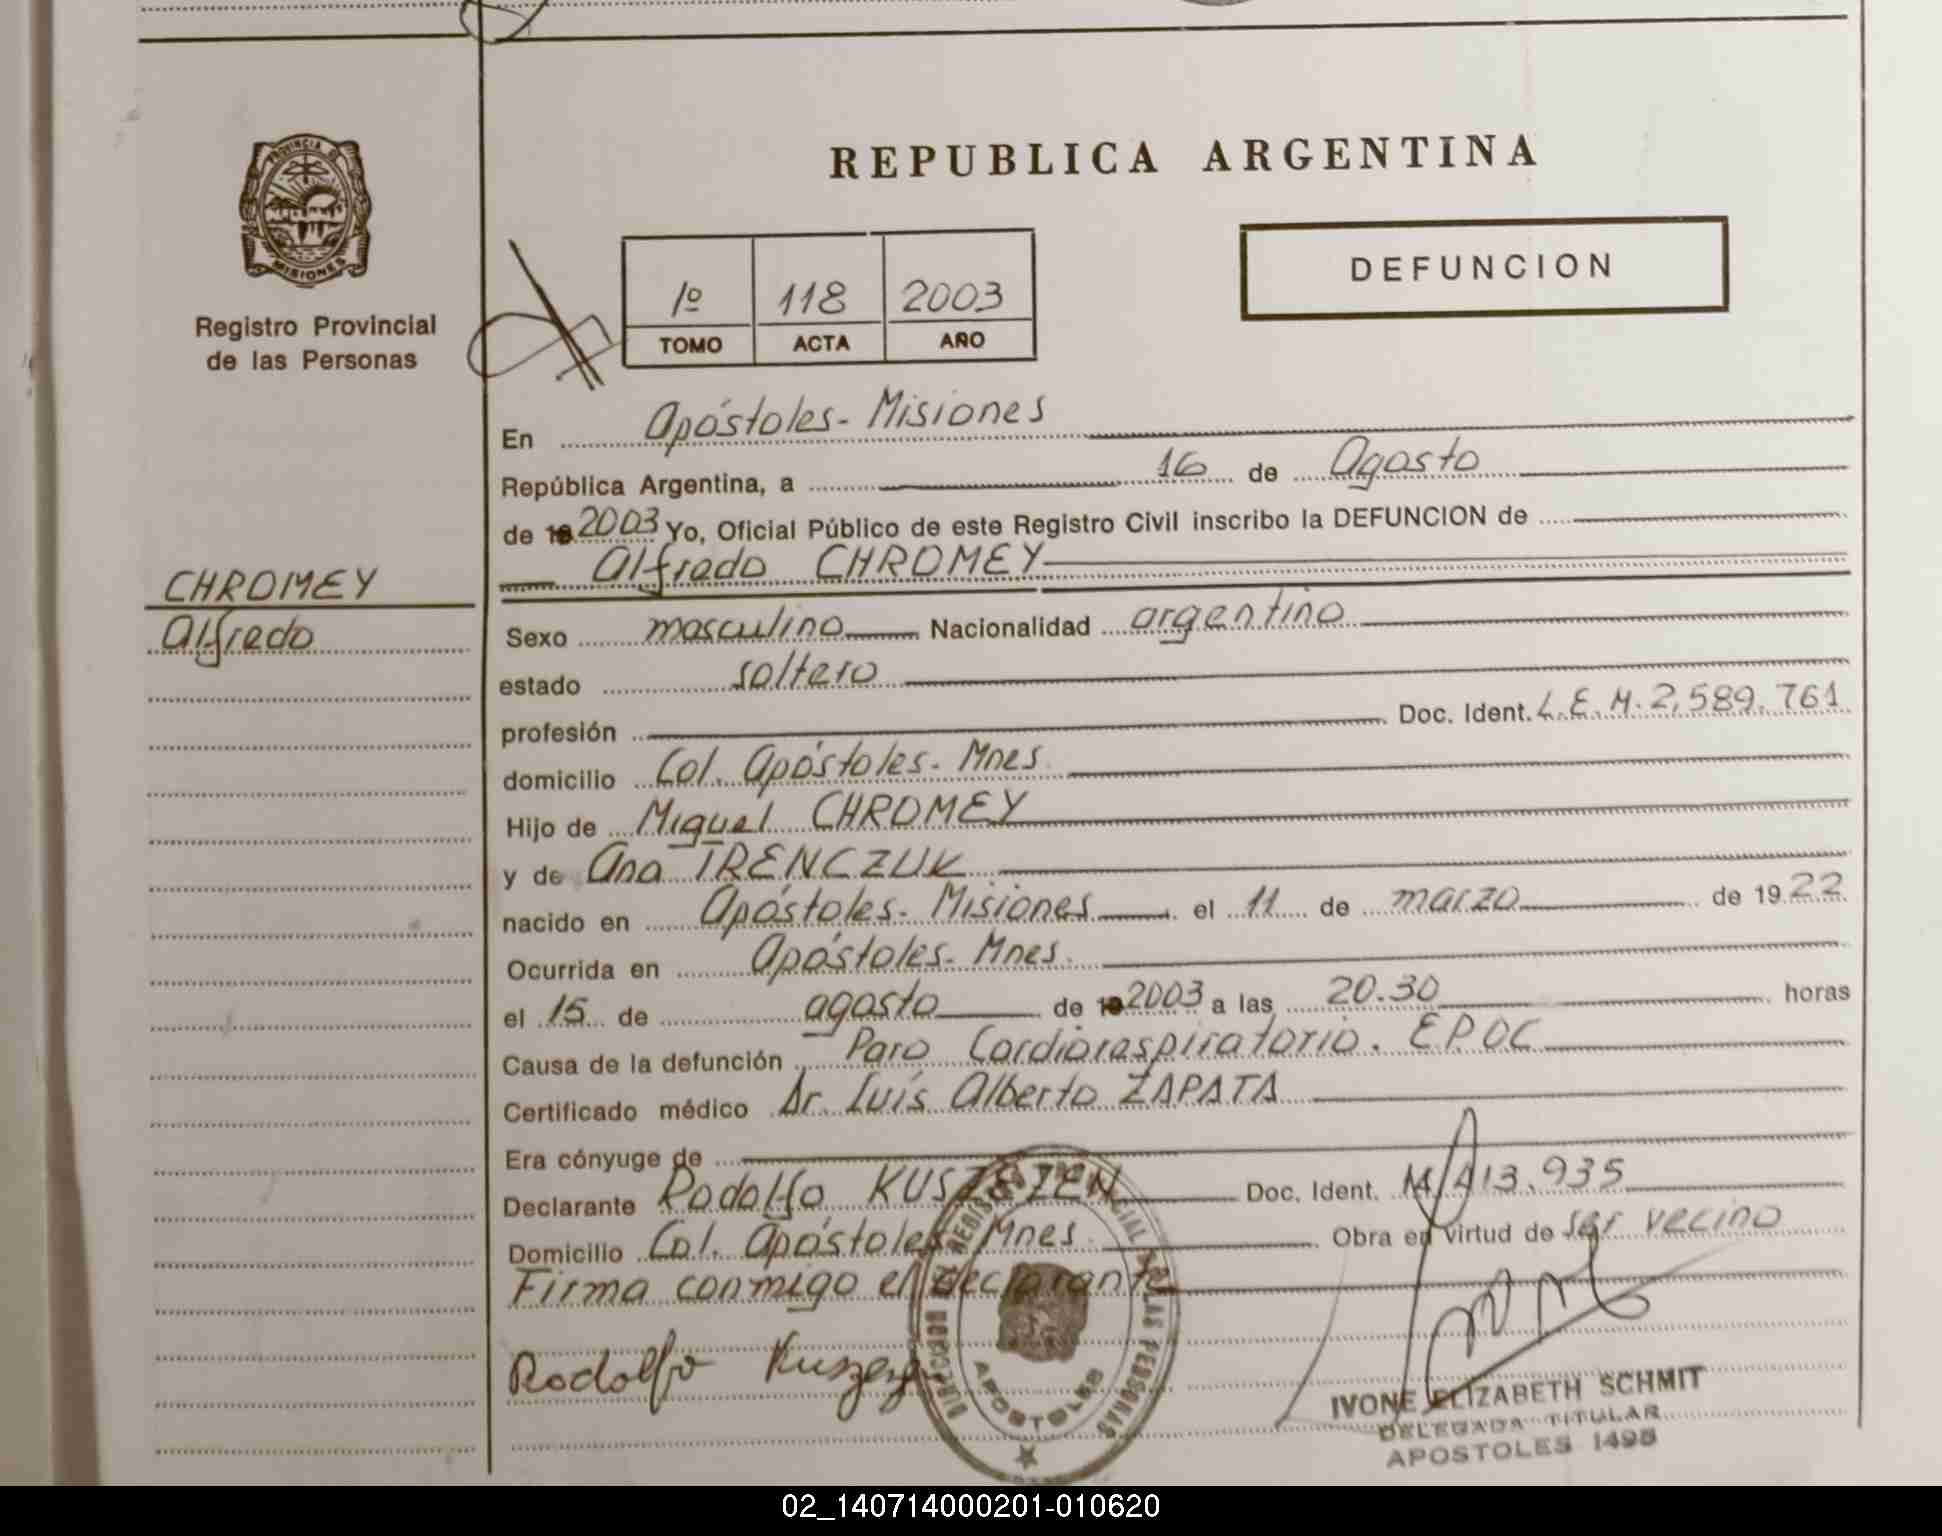 PROVINCIA DE
MISIONES
Registro Provincial
de las Personas
CHROMEY
Alfredo
REPUBLICA ARGENTINA
1º 118 2003
TOMO ACTA AÑO
DEFUNCION
En Apóstoles - Misiones
República Argentina, a 16 de Agosto
de 19 2003 Yo, Oficial Público de este Registro Civil inscribo la DEFUNCION de
Alfredo CHROMEY
Sexo masculino Nacionalidad argentino
estado soltero
profesión Doc. Ident. L.E.M. 2,589.761
domicilio Col. Apóstoles - Mnes.
Hijo de Miguel CHROMEY
y de Ana TRENCZUK
nacido en Apóstoles - Misiones el 11 de marzo de 1922
Ocurrida en Apóstoles - Mnes.
el 15 de agosto de 19 2003 a las 20.30 horas
Causa de la defunción Paro Cardiorespiratorio. EPOC
Certificado médico Dr. Luis Alberto ZAPATA
Era cónyuge de
Declarante Rodolfo Doc. Ident. 413.935
Domicilio Col. Apóstoles Mnes. Obra en virtud de ser vecino
Firma conmigo el declarante
Rodolfo
DIRECCION DEL REGISTRO PROVINCIAL DE LAS PERSONAS
APOSTOLES
IVONE ELIZABETH SCHMIT
DELEGADA TITULAR
APOSTOLES 1495
02_140714000201-010620